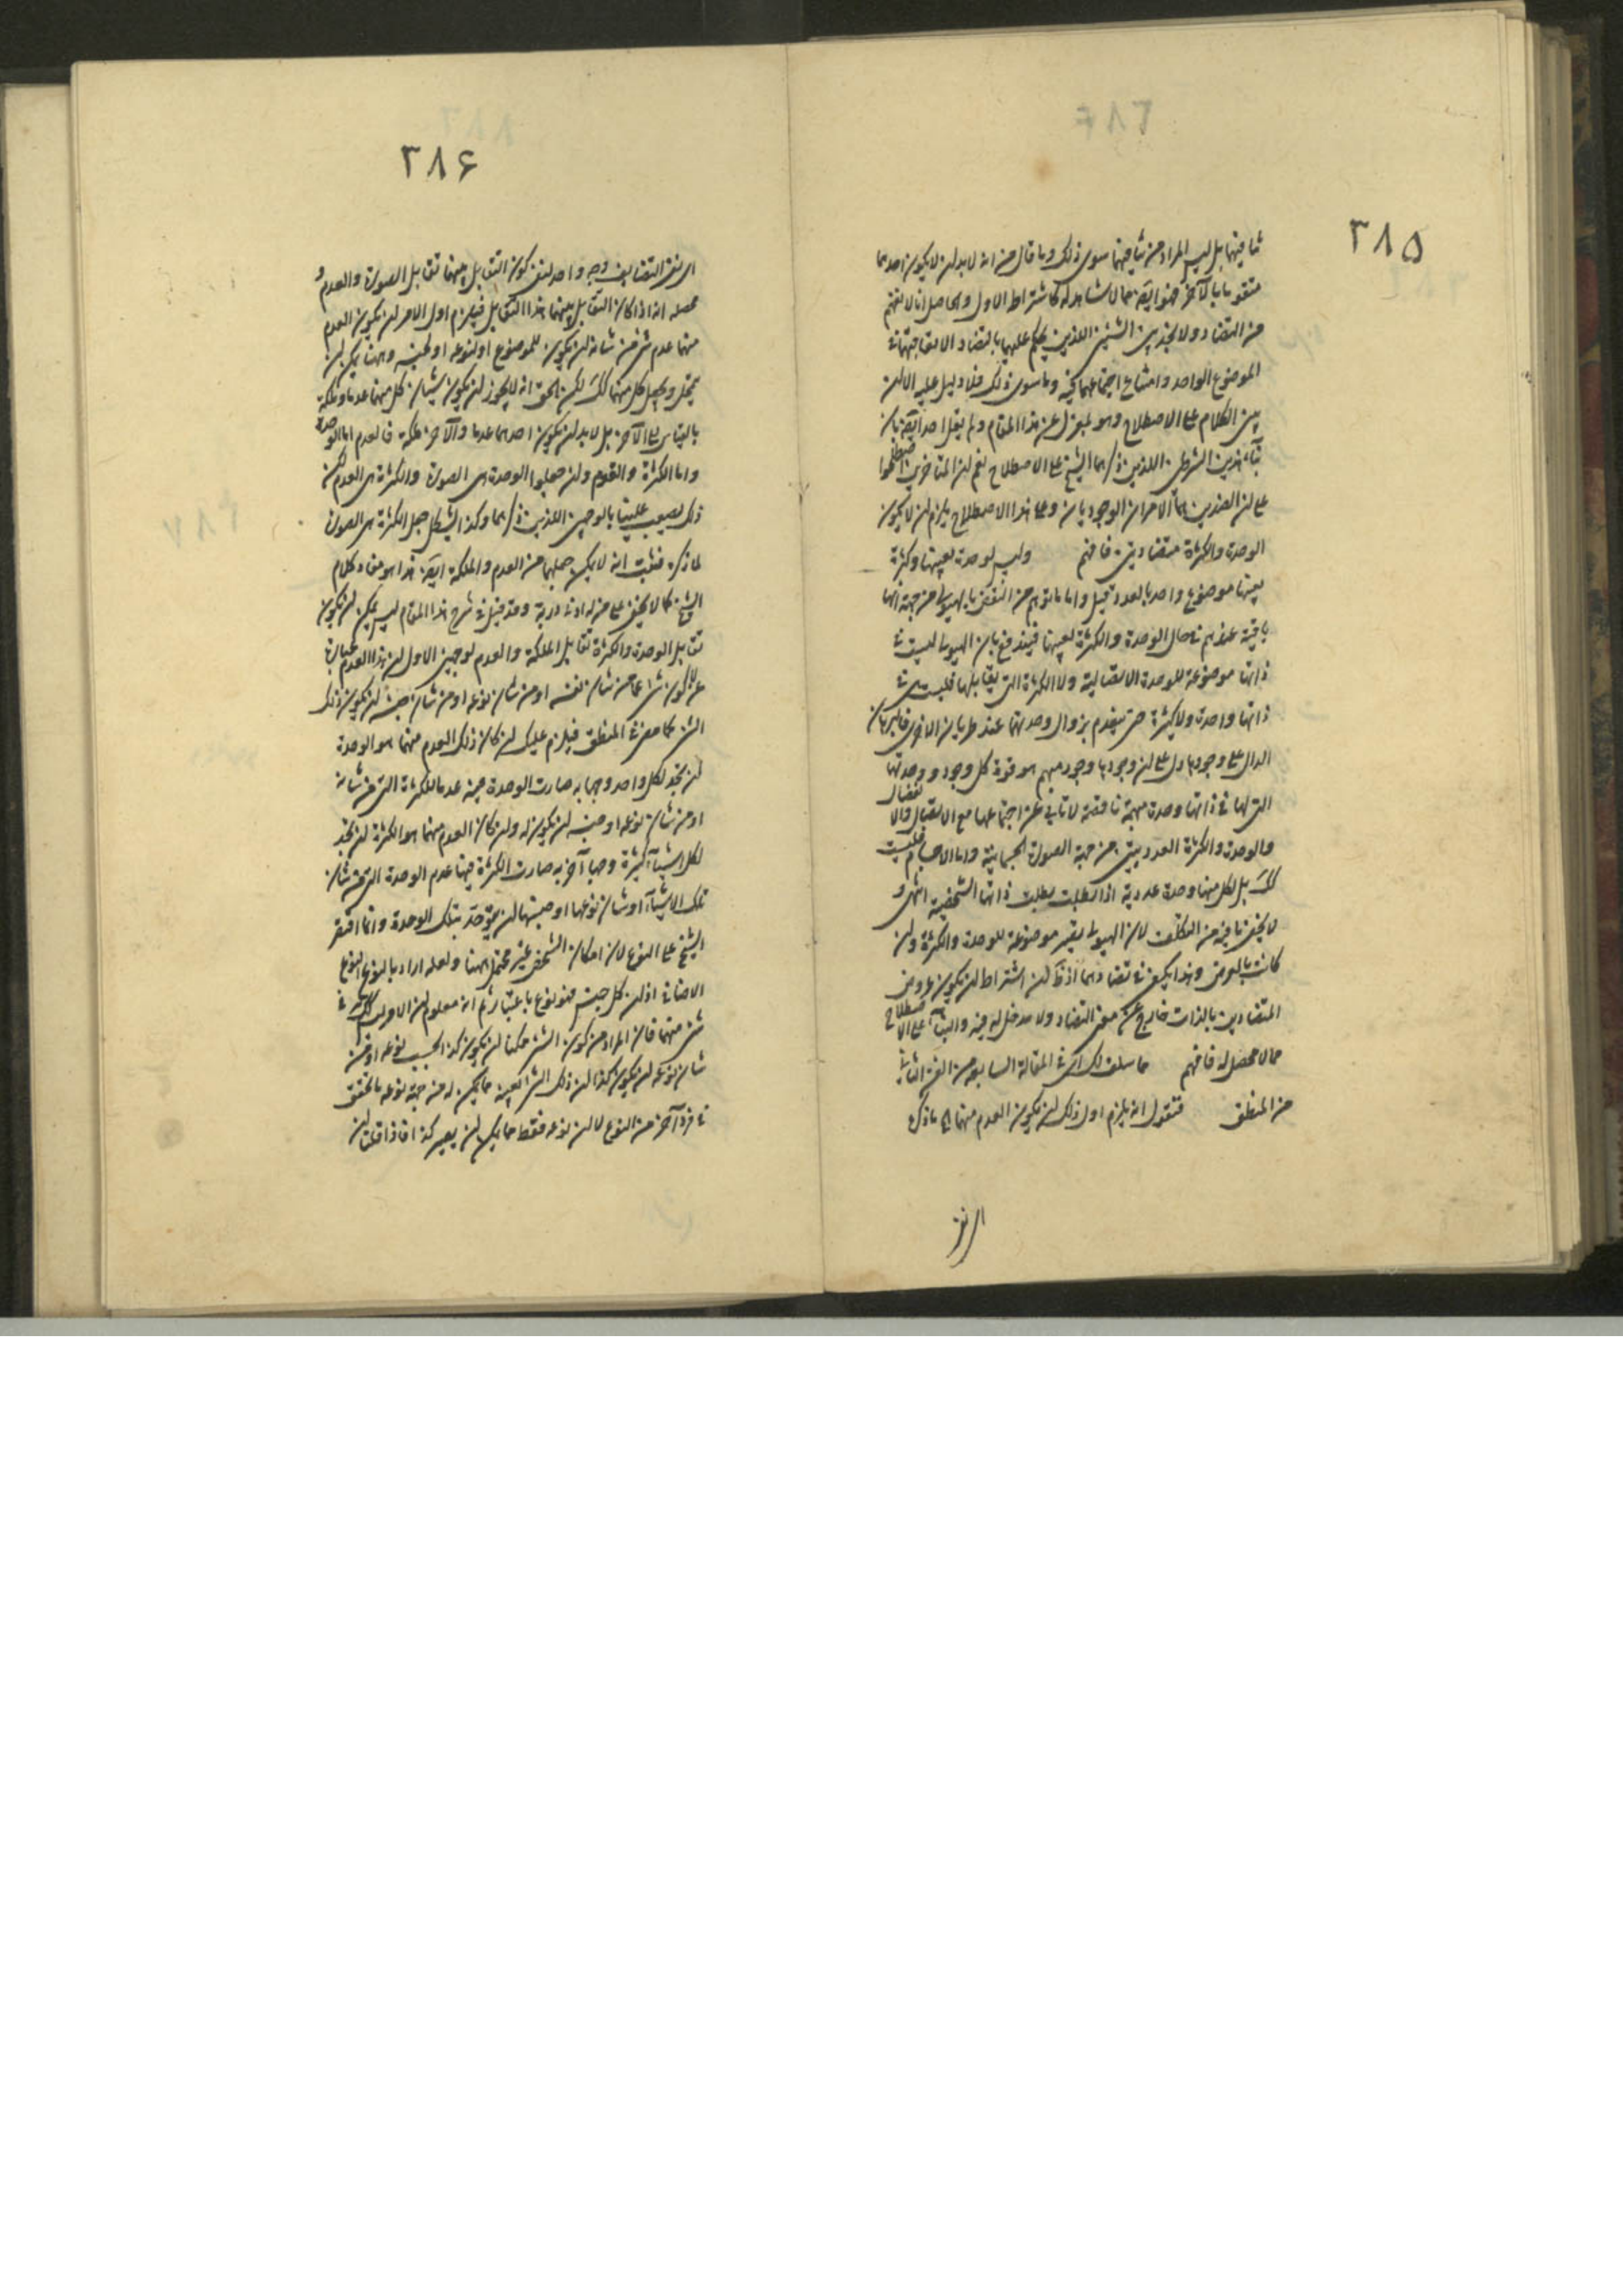 ٣٨٥
ثنا فيهما بل ليس المراد من تنافيهما سوى ذلك وما قال من انه لابد لن لا يكون احدهما
متقوما بالآخر فهو ايضا مما لا شاهد له كاشتراط الاول والحاصل انا لا نفهم
من التضاد ولا نجد بين الشيئين اللذين يحكم عليهما بالتضاد الا تعاقبهما في
الموضوع الواحد وامتناع اجتماعهما فيه وما سوى ذلك فلا دليل عليه الا لن
يبنى الكلام على الاصطلاح وهو بمعزل عن هذا المقام ولم يقل احد ايضا بان
هذين الشرطين اللذين ذكرهما الشيخ على الاصطلاح نعم لن المتاخرين اصطلحوا
على لن الضدين هما الامران الوجوديان وعلى هذا الاصطلاح يلزم لن لا يكون
الوحدة والكثرة متضادتين فافهم وليس لوحدة بعينها وكثرة
بعينها موضوع واحد بالعدد قيل واما ما يتوهم من النقض بالهيولى من جهة انها
باقية عندهم في حال الوحدة والكثرة بعينها فيندفع بان الهيولى ليست في
ذاتها موضوعة للوحدة الاتصالية ولا الكثرة التي يقابلها فليست في
ذاتها واحدة ولا كثيرة حتى ينعدم بزوال وحدتها عند طريان الاخرى فالبرهان
الدال على وجودها دل على لن وجودها وجود مبهم هو قوة كل وجود ووحدتها
التي لها في ذاتها وحدة مبهمة ناقصة لا تابى عن اجتماعها مع الاتصال والانفصال
والوحدة والكثرة العدديتين من جهة الصورة الجسمانية واما الاجسام فليست
كك بل لكل منها وحدة عددية اذا بطلت بطلت ذاتها الشخصية انتهى و
لا يخفى ما فيه من التكلف لان الهيولى يصير موضوعة للوحدة والكثرة ولن
كانت بالعرض وهذا يكفي في تضادهما اذ لن اشتراط لن يكون عروض
المتضادين بالذات خارج عن معنى التضاد ولا مدخل له فيه والبناء على الاصطلاح
مما لا محصل له فافهم ما سلف لك اى في المقالة السابعة من الفن الثاني
من المنطق فنقول انه يلزم اول ذلك لن يكون العدم منهما الى ما ذكر
٣٨٦
محصله انه اذا كان التقابل بينهما هذا التقابل فيلزم اول الامر لن يكون العدم
منهما عدم شئ من شانه لن يكون للموضوع او لنوعه او لجنسه وههنا يمكن لن
يتمحل ويجعل كل منهما كك لكن الحق انه لا يجوز لن يكون شيئان كل منهما عدما وملكة
بالقياس الى الآخر بل لابد لن يكون احدهما عدما والآخر ملكة فالعدم اما الوحدة
واما الكثرة والقوم ولن جعلوا الوحدة هى الصورة والكثرة هى العدم لكن
لما ذكره فثبت انه لا يمكن جعلهما من العدم والملكة ايضا هذا هو مفاد كلام
الشيخ كما لا يخفى على من له ادنى دربة وقد قيل في شرح هذا المقام ليس يمكن لن يكون
تقابل الوحدة والكثرة تقابل الملكة والعدم لوجهين الاول لن هذا العدم عبارة
عن لا كون شئ عما من شان نفسه او من شان نوعه او من شان جنسه لن يكون ذلك
الشئ كما مضى في المنطق فيلزم عليك لن كان ذلك العدم منهما هو الوحدة
لن تجد لكل واحد وجها به صارت الوحدة فيه عدما للكثرة التي من شانه
او من شان نوعه او جنسه لن يكون له ولن كان العدم منهما هو الكثرة لن تجد
لكل اشياء كثيرة وجها آخر به صارت الكثرة فيها عدم الوحدة التي من شان
تلك الاشياء او شان نوعها او جنسها لن يتوحد بتلك الوحدة وانما اقتصر
الشيخ على النوع لان امكان الشخص غير محتمل ههنا ولعله اراد بالنوع النوع
الاضافي اذ لن كل جنس فهو نوع باعتبار ثم انه معلوم لن الامر ليس كك في
شئ منهما فان المراد من كون الشئ ممكنا لن يكون كذا بحسب نوعه او من
شان نوعه لن يكون كذا لن ذلك الشئ بعينه مما يمكن له من جهة نوعه ما تحقق
في فرد آخر من النوع لا لن نوعه فقط مما يمكن لن يصير كذا فاذا قلنا لن